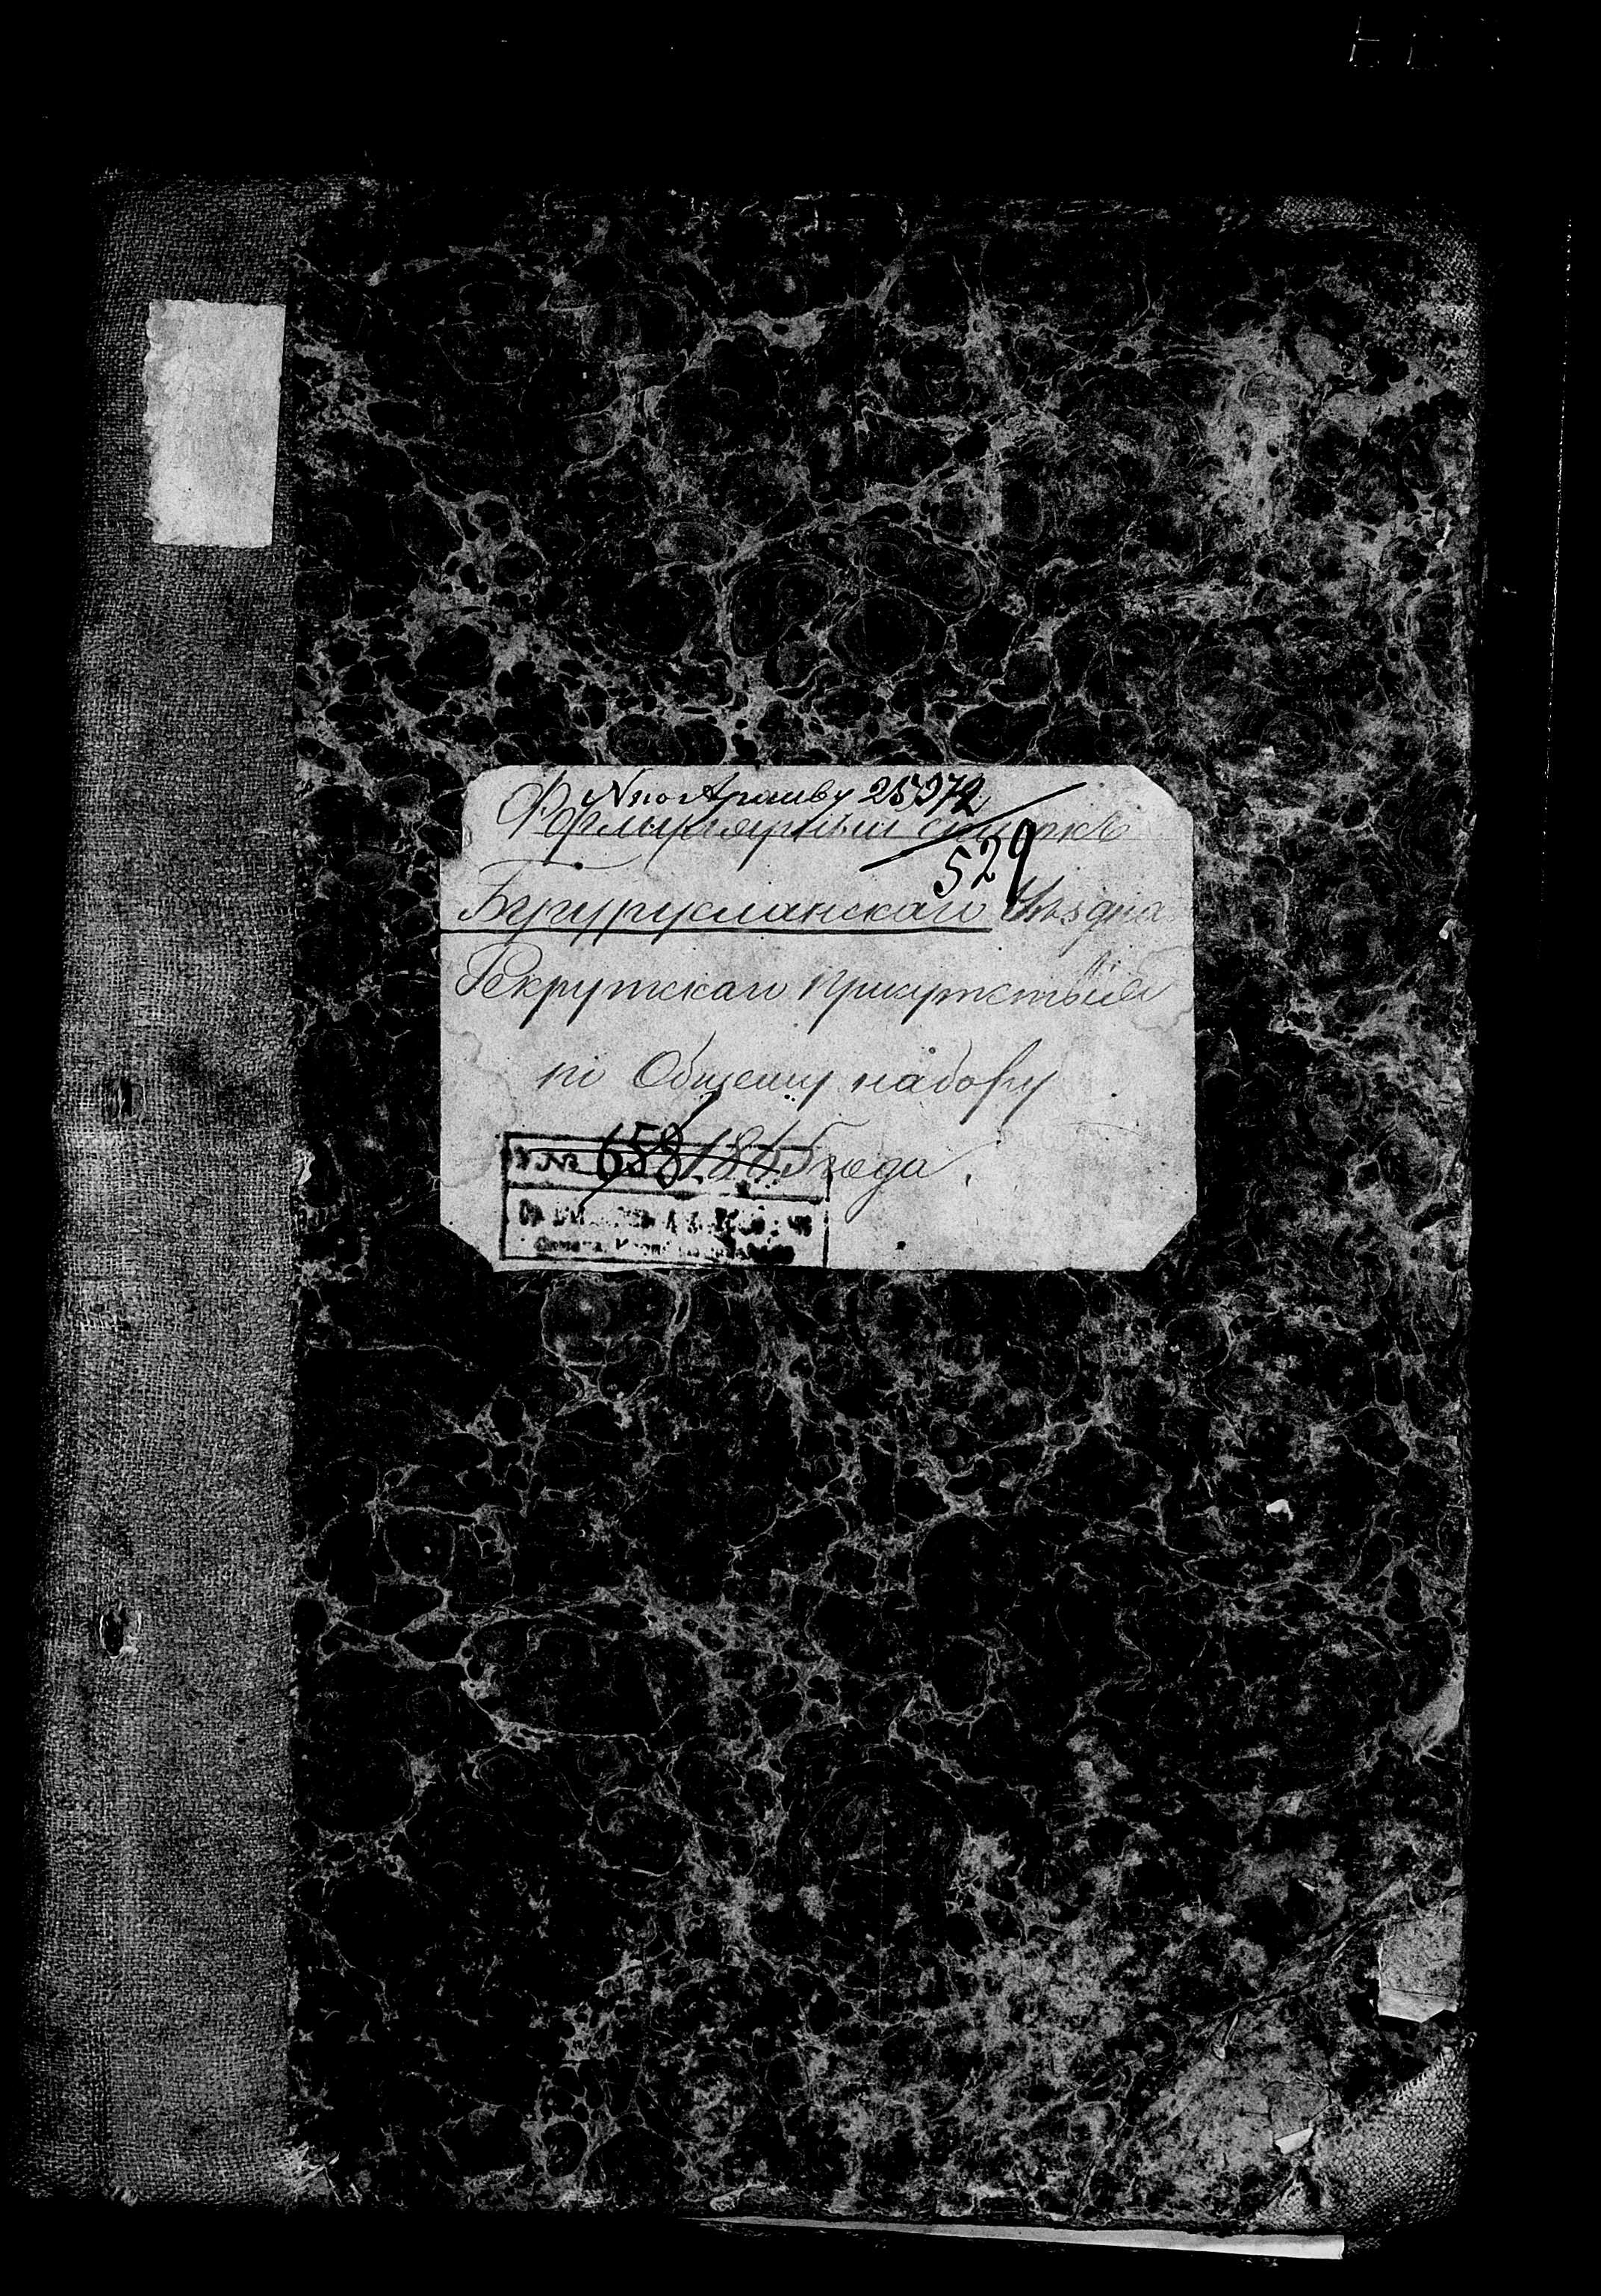 N по Архиву 25372
Формулярный списокъ
529
Бугурусланскаго Уѣзднаго
Рекрутскаго присутствія
по Общему набору
1865 года.
У. № 658